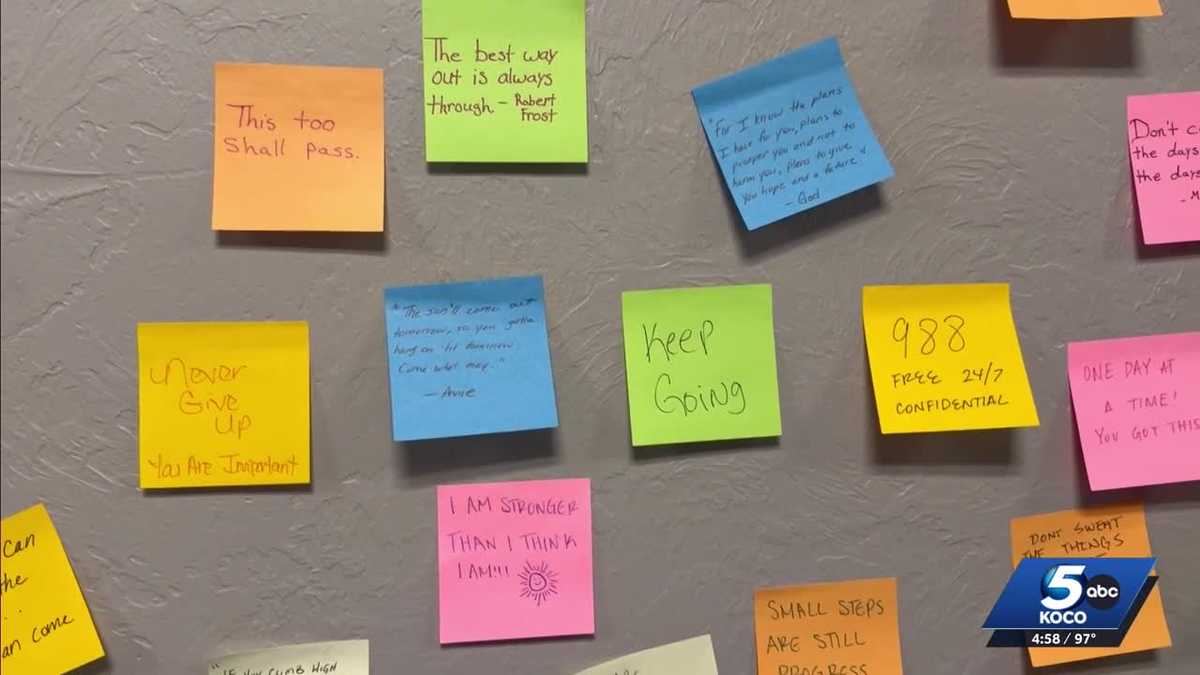 The best way
out is always
through - Robert
Frost
This too
Shall pass.
"For I know the plans
I have for you, plans to
prosper you and not to
harm you, plans to give
you hope and a future."
- God
Don't c
the days
the days
- M
"The sun'll come out
tomorrow, so you gotta
hang on 'til tomorrow
Come what may."
- Annie
Keep
Going
988
FREE 24/7
CONFIDENTIAL
Never
Give
Up
You Are Important
ONE DAY AT
A TIME!
YOU GOT THIS
I AM STRONGER
THAN I THINK
I AM!!!
DONT SWEAT
THE THINGS
can
the
an come
SMALL STEPS
ARE STILL
PROGRESS
"IF YOU CLIMB HIGH
5 abc
KOCO
4:58 / 97°